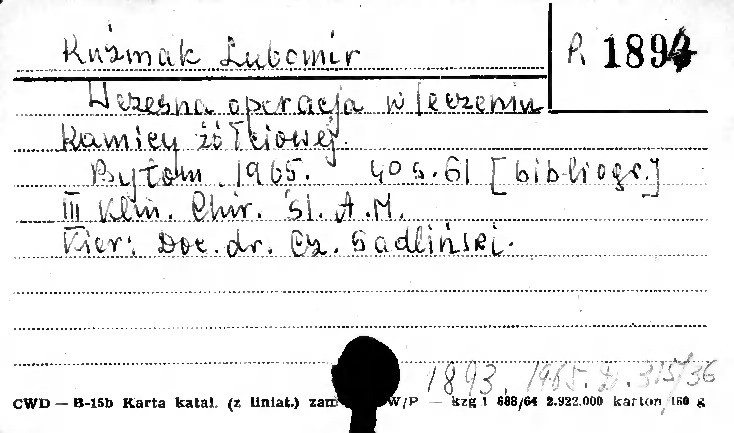 Kuźmak Lubomir
P. 1894
Wczesna operacja w leczeniu
Kamicy żółciowej.
Bytom 1965. 40 s. 61 [bibliogr.]
III Klin. Chir. Śl. A.M.
Kier: Doc. dr. Cz. Sadliński.
1893, 1965. D. 315/36
CWD — B-15b Karta katal. (z liniat.) zam W/P — kzg 1 688/64 2.922.000 karton 160 g